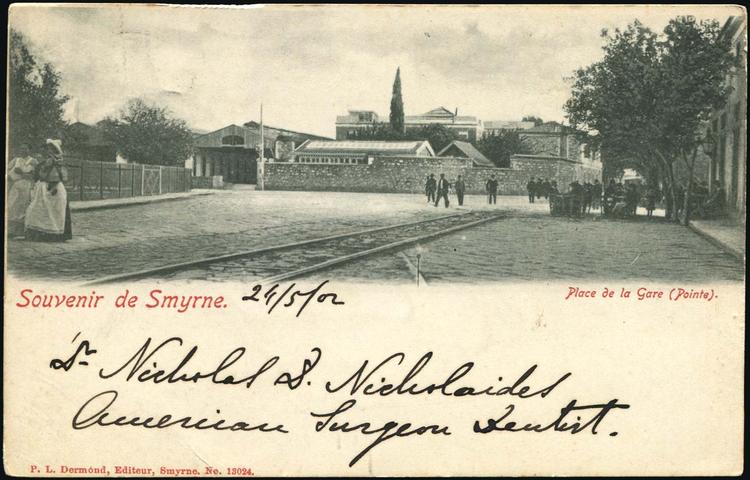 Souvenir de Smyrne. 24/5/02
Place de la Gare (Pointe).
Dr Nicholas D. Nicholaides
American Surgeon Dentist.
P. L. Dermónd, Editeur, Smyrne. No. 13024.